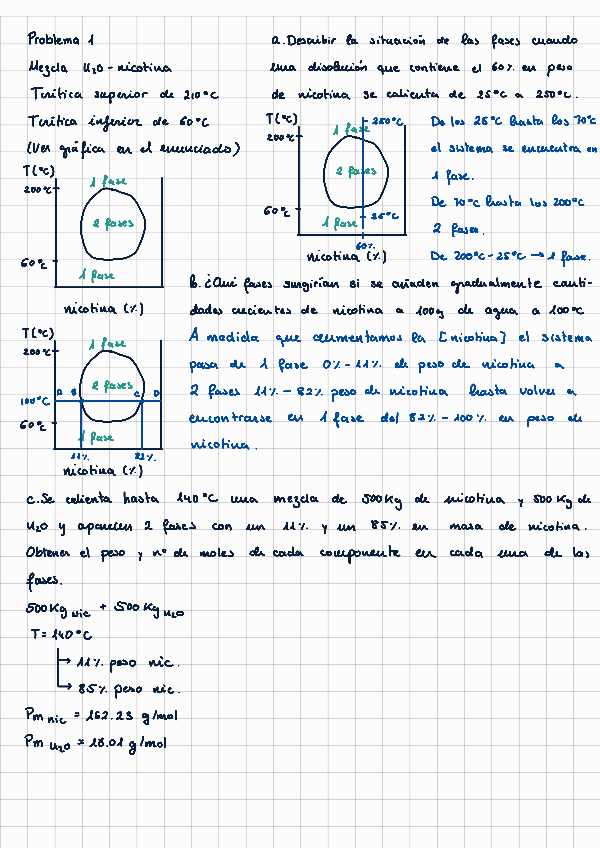 Problema 1
Mezcla H2O - nicotina
Tcrítica superior de 210°C
Tcrítica inferior de 60°C
(Ver gráfica en el enunciado)
T(°C)
1 fase
200°C
2 fases
60°C
1 fase
nicotina (%)
a. Describir la situación de las fases cuando
una disolución que contiene el 60% en peso
de nicotina se calienta de 25°C a 250°C.
T(°C)
250°C
1 fase
200°C
2 fases
60°C
1 fase
25°C
60%
nicotina (%)
De los 25°C hasta los 70°C
el sistema se encuentra en
1 fase.
De 70°C hasta los 200°C
2 fases.
De 200°C - 25°C → 1 fase.
b. ¿Qué fases surgirían si se añaden gradualmente canti-
dades crecientes de nicotina a 100g de agua a 100°C
T(°C)
1 fase
200°C
2 fases
A B C D
100°C
60°C
1 fase
11% 82%
nicotina (%)
A medida que aumentamos la [nicotina] el sistema
pasa de 1 fase 0% - 11% de peso de nicotina a
2 fases 11% - 82% peso de nicotina hasta volver a
encontrarse en 1 fase del 82% - 100% en peso de
nicotina.
c. Se calienta hasta 140°C una mezcla de 500Kg de nicotina y 500Kg de
H2O y aparecen 2 fases con un 11% y un 85% en masa de nicotina.
Obtener el peso y nº de moles de cada componente en cada una de las
fases.
500Kg nic + 500Kg H2O
T = 140°C
→ 11% peso nic.
→ 85% peso nic.
Pm nic = 162.23 g/mol
Pm H2O = 18.01 g/mol